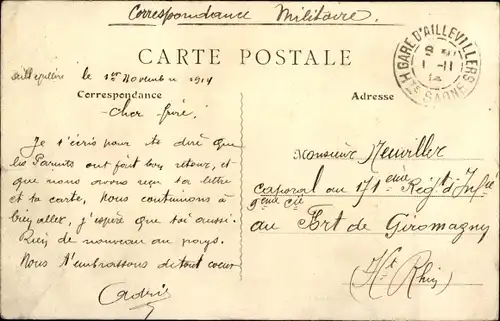 Correspondance Militaire.
CARTE POSTALE
GARE D'AILLEVILLERS
Hte SAONE
le 1er Novembre 1914
Correspondance
Adresse
Cher frère.
Je t'écris pour te dire que
les Parents ont fait bon retour, et
que nous avons reçu ta lettre
et ta carte, Nous continuons à
bien aller, j'espère que toi aussi.
Rien de nouveau au pays.
Nous t'embrassons de tout coeur
Monsieur Neuviller
Caporal au 171eme Régt d'Infrie
9eme Cie
au Fort de Giromagny
(Ht Rhin)